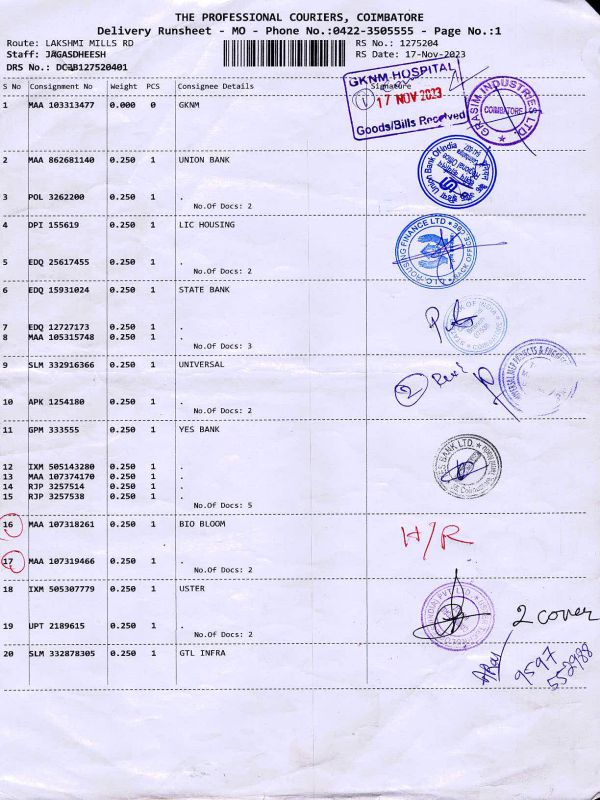 THE PROFESSIONAL COURIERS, COIMBATORE
Delivery Runsheet - MO - Phone No.:0422-3505555 - Page No.:1
Route: LAKSHMI MILLS RD RS No.: 1275204
Staff: JAGASDHEESH RS Date: 17-Nov-2023
DRS No.: DCJB127520401
S No Consignment No Weight PCS Consignee Details Signature
GKNM HOSPITAL
17 NOV 2023
Goods/Bills Received
GRASIM INDUSTRIES LTD.
COIMBATORE
1 MAA 103313477 0.000 0 GKNM
2 MAA 862681140 0.250 1 UNION BANK
Union Bank Of India
3 POL 3262200 0.250 1 .
No.Of Docs: 2
4 DPI 155619 0.250 1 LIC HOUSING
HOUSING FINANCE LTD
5 EDQ 25617455 0.250 1 .
No.Of Docs: 2
6 EDQ 15931024 0.250 1 STATE BANK
7 EDQ 12727173 0.250 1 .
8 MAA 105315748 0.250 1 .
No.Of Docs: 3
9 SLM 332916366 0.250 1 UNIVERSAL
2
10 APK 1254180 0.250 1 .
No.Of Docs: 2
11 GPM 333555 0.250 1 YES BANK
YES BANK LTD.
12 IXM 505143280 0.250 1 .
13 MAA 107374170 0.250 1 .
14 RJP 3257514 0.250 1 .
15 RJP 3257538 0.250 1 .
No.Of Docs: 5
16 MAA 107318261 0.250 1 BIO BLOOM
H/R
17 MAA 107319466 0.250 1 .
No.Of Docs: 2
18 IXM 505307779 0.250 1 USTER
2 cover
19 UPT 2189615 0.250 1 .
No.Of Docs: 2
20 SLM 332878305 0.250 1 GTL INFRA
9597
552988